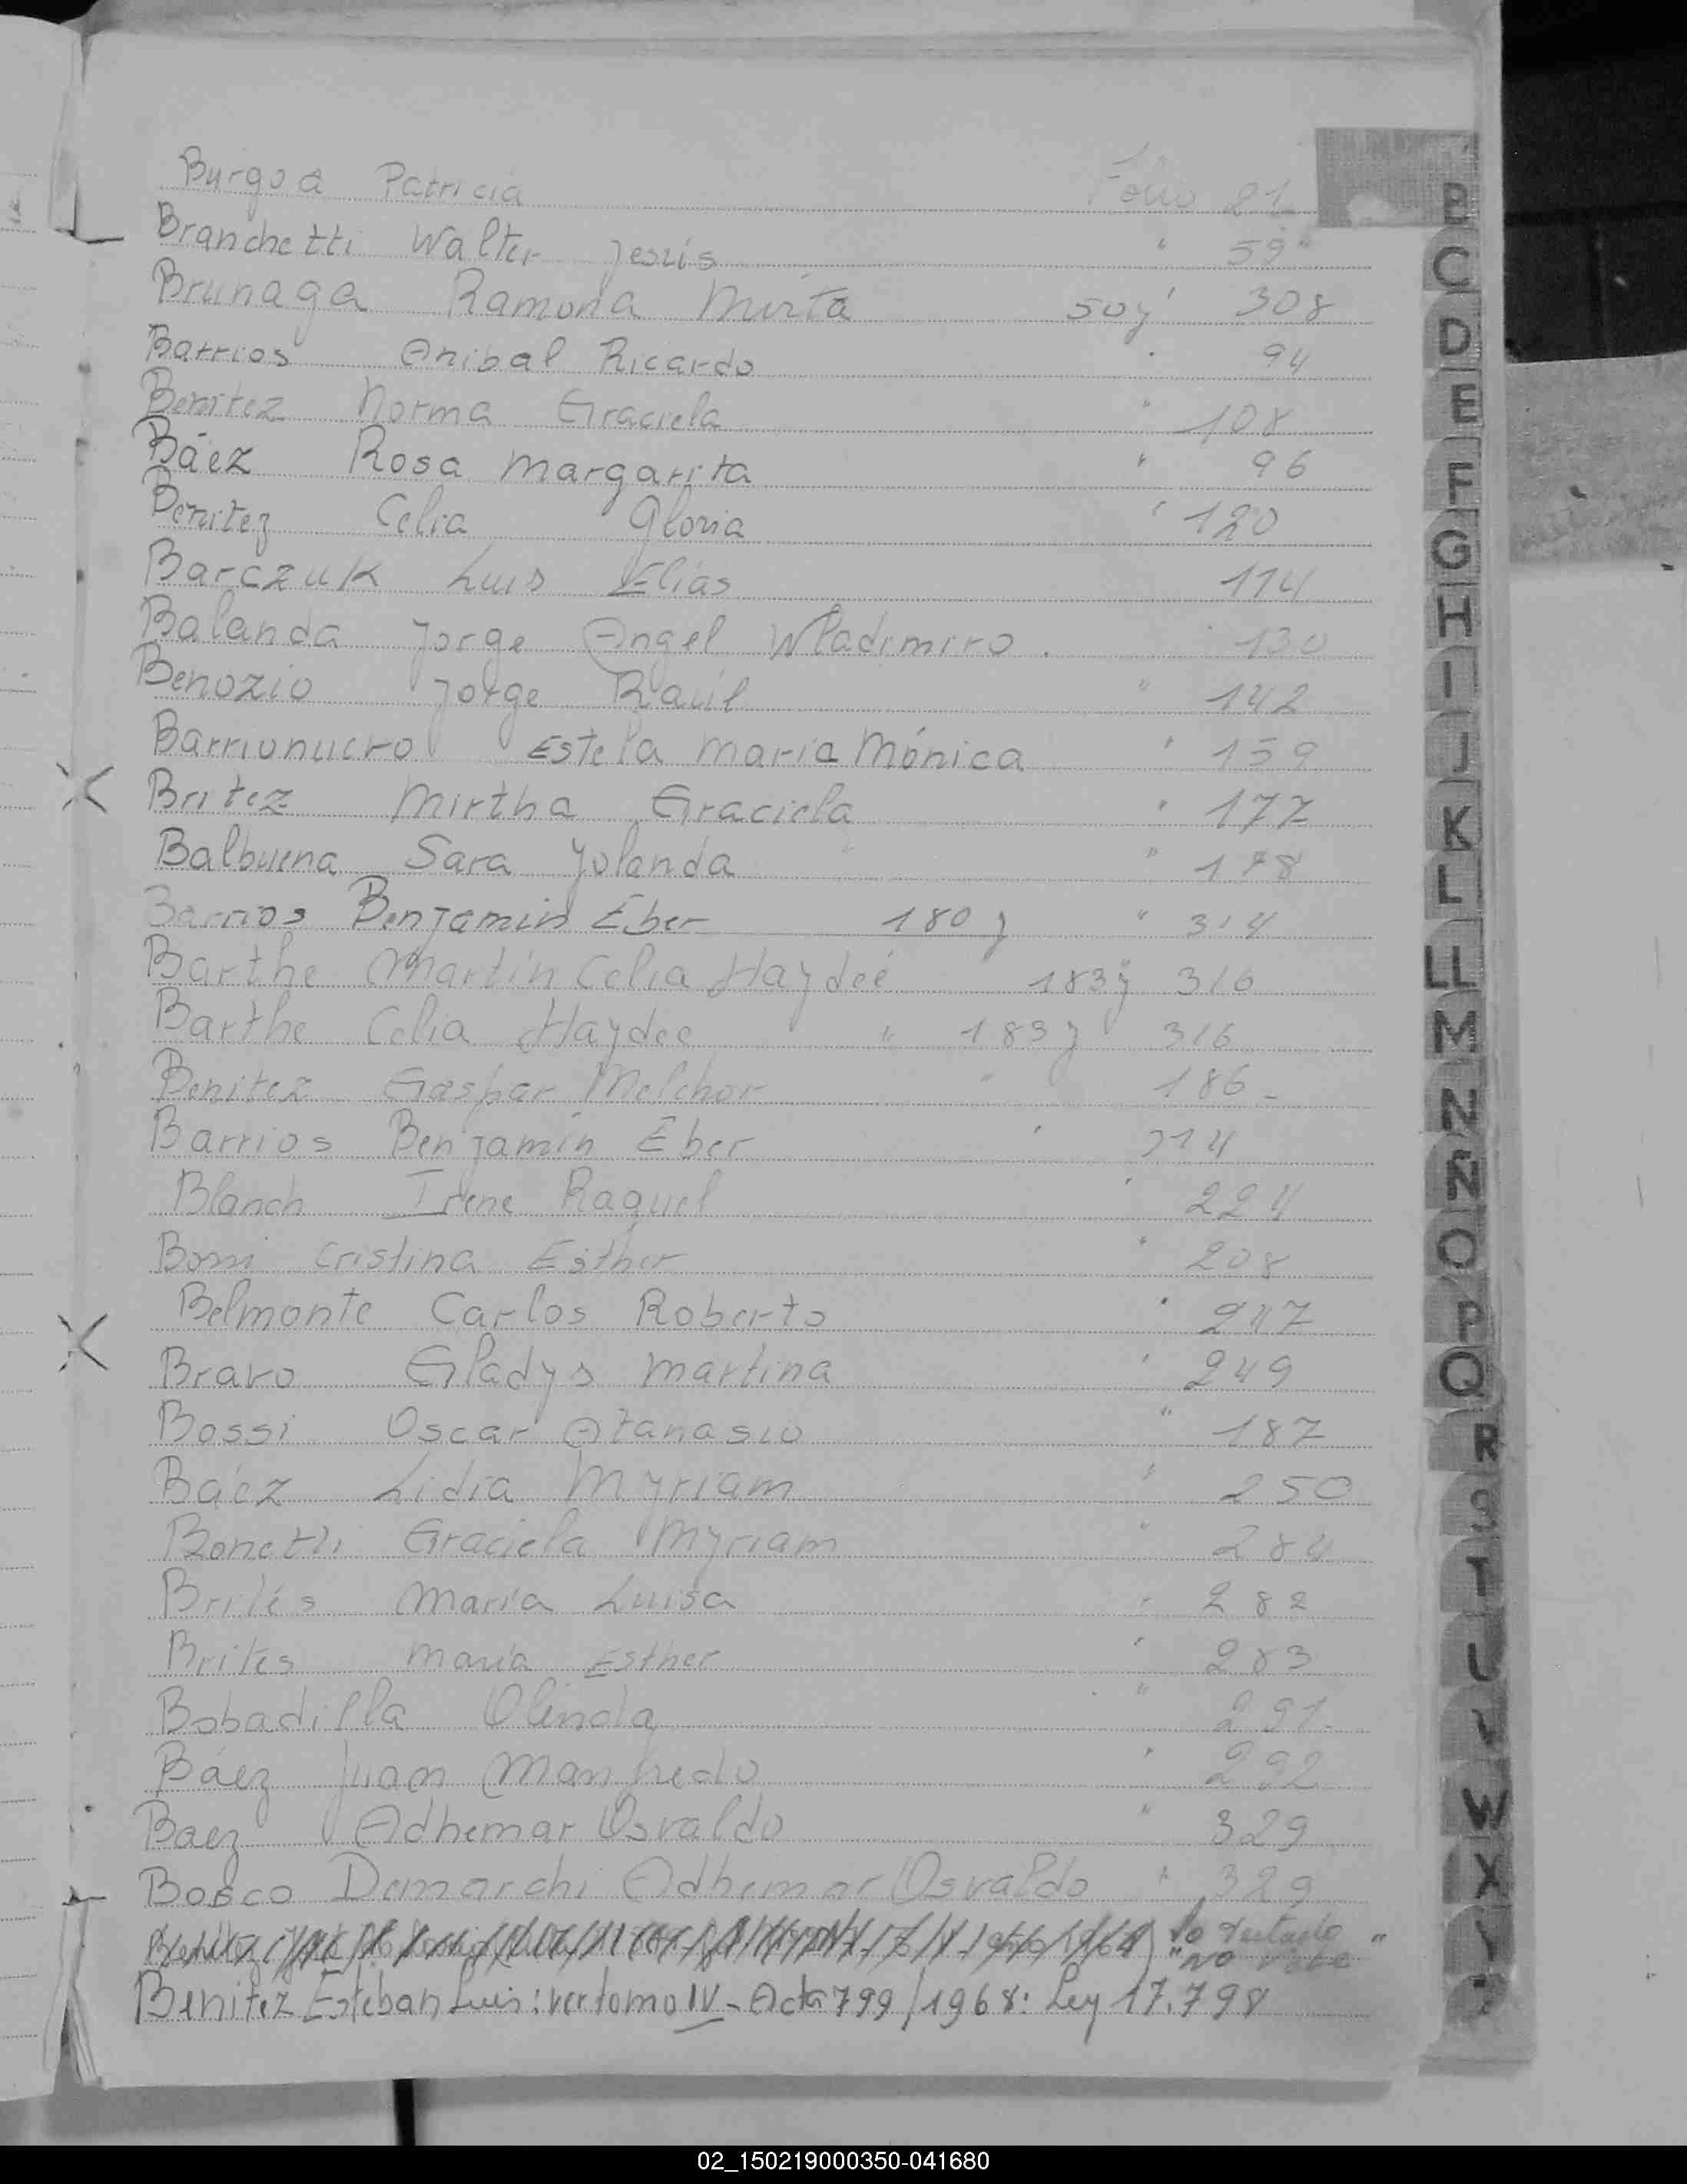 Burgoa Patricia Folio 21
Branchetti Walter Jesús " 59"
Brunaga Ramona Mirta 50 y 308
Barrios Anibal Ricardo " 94
Benitez Norma Graciela " 108
Báez Rosa Margarita " 96
Benitez Celia Gloria " 120
Barczuk Luis Elías 114
Balanda Jorge Angel Wladimiro. " 130
Benozio Jorge Raúl " 142
Barrionuevo Estela María Mónica " 159
Britez Mirtha Graciela " 177
Balbuena Sara Yolanda " 178
Barrios Benjamin Eber 180 y " 314
Barthe Martín Celia Haydeé 183 y 316
Barthe Celia Haydee " 183 y 316
Benitez Gaspar Melchor " 186-
Barrios Benjamín Eber " 314
Blanch Irene Raquel " 224
Cristina Esther " 208
Belmonte Carlos Roberto " 247
Bravo Gladys Martina " 249
Bossi Oscar Atanasio " 187
Báez Lidia Myriam " 250
Bonetti Graciela Myriam " 284
Brités María Luisa " 282
Brites María Esther " 283
Bobadilla Olinda " 291-
Báez Juan Manfredo " 292
Baez Adhemar Osvaldo " 329
Bosco Demarchi Adhemar Osvaldo " 329
lo testado "
"no vale
Benitez Esteban Luis: ver tomo IV - Acta 799/1968: Ley 17.798
B
C
D
E
F
G
H
I
J
K
L
LL
M
N
Ñ
O
P
Q
R
S
T
U
V
W
X
Y
02_150219000350-041680